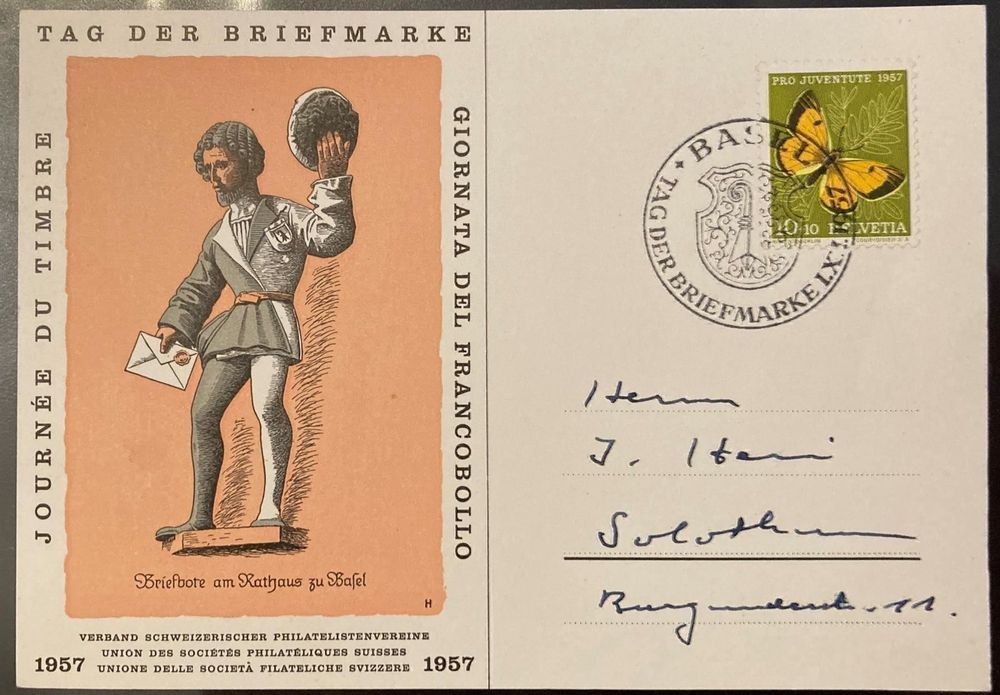 TAG DER BRIEFMARKE
JOURNÉE DU TIMBRE
GIORNATA DEL FRANCOBOLLO
Briefbote am Rathaus zu Basel
H
VERBAND SCHWEIZERISCHER PHILATELISTENVEREINE
UNION DES SOCIÉTÉS PHILATÉLIQUES SUISSES
1957 UNIONE DELLE SOCIETÀ FILATELICHE SVIZZERE 1957
PRO JUVENTUTE 1957
10+10 HELVETIA
COURVOISIER S.A.
BASEL
TAG DER BRIEFMARKE 1.XII.1957
Herrn
J.
Solothurn
Burgunderstr. 11.